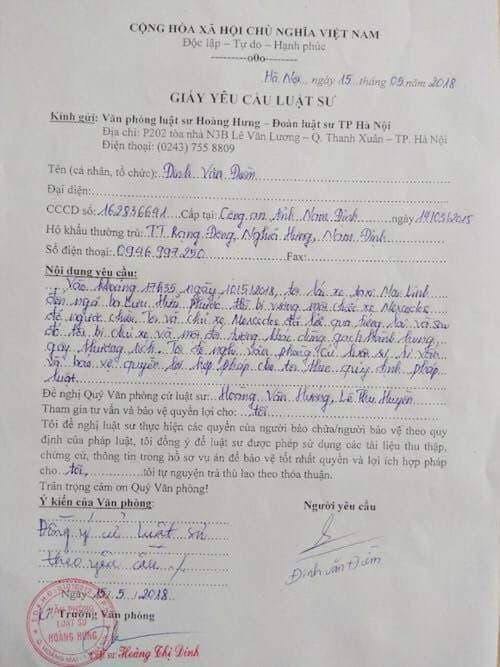 CỘNG HÒA XÃ HỘI CHỦ NGHĨA VIỆT NAM
Độc lập – Tự do – Hạnh phúc
----------o0o----------
Hà Nội, ngày 15 tháng 05 năm 2018
GIẤY YÊU CẦU LUẬT SƯ
Kính gửi: Văn phòng luật sư Hoàng Hưng – Đoàn luật sư TP Hà Nội
Địa chỉ: P202 tòa nhà N3B Lê Văn Lương – Q. Thanh Xuân – TP. Hà Nội
Điện thoại: (0243) 755 8809
Tên (cá nhân, tổ chức): Đinh Văn Điềm
Đại diện:
CCCD số: 162836691 Cấp tại: Công an tỉnh Nam Định ngày 14/03/2015
Hộ khẩu thường trú: TT. Rạng Đông, Nghĩa Hưng, Nam Định
Số điện thoại: 0946.997.250 Fax:
Nội dung yêu cầu:
Vào khoảng 17h35, ngày 10/5/2018, tôi lái xe taxi Mai Linh
đến ngã ba Lưu Hữu Phước thì bị vướng một chiếc xe Mercedes
đỗ ngược chiều. Tôi và chủ xe Mercedes đã lời qua tiếng lại và sau
đó tôi bị chủ xe và một đối tượng khác dùng gạch hành hung,
gây thương tích. Tôi đề nghị văn phòng cử luật sư tư vấn
và bảo vệ quyền lợi hợp pháp cho tôi theo quy định pháp
luật.
Đề nghị Quý Văn phòng cử luật sư: Hoàng Văn Hướng, Lê Thu Huyền
Tham gia tư vấn và bảo vệ quyền lợi cho: tôi
Tôi đề nghị luật sư thực hiện các quyền của người bào chữa/người bảo vệ theo quy
định của pháp luật, tôi đồng ý để luật sư được phép sử dụng các tài liệu thu thập,
chứng cứ, thông tin trong hồ sơ vụ án để bảo vệ tốt nhất quyền và lợi ích hợp pháp
cho tôi, tôi tự nguyện trả thù lao theo thỏa thuận.
Trân trọng cảm ơn Quý Văn phòng!
Ý kiến của Văn phòng: Người yêu cầu
Đồng ý cử luật sư
theo yêu cầu
Đinh Văn Điềm
Ngày 15/5/2018
Trưởng Văn phòng
VĂN PHÒNG
LUẬT SƯ
HOÀNG HƯNG
Hoàng Thị Dinh